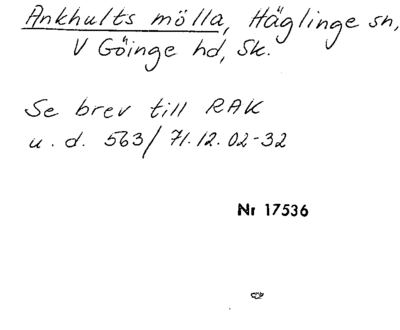 Ankhults mölla, Häglinge sn,
V Göinge hd, Sk.
Se brev till RAK
u. d. 563/71.12.02-32
Nr 17536